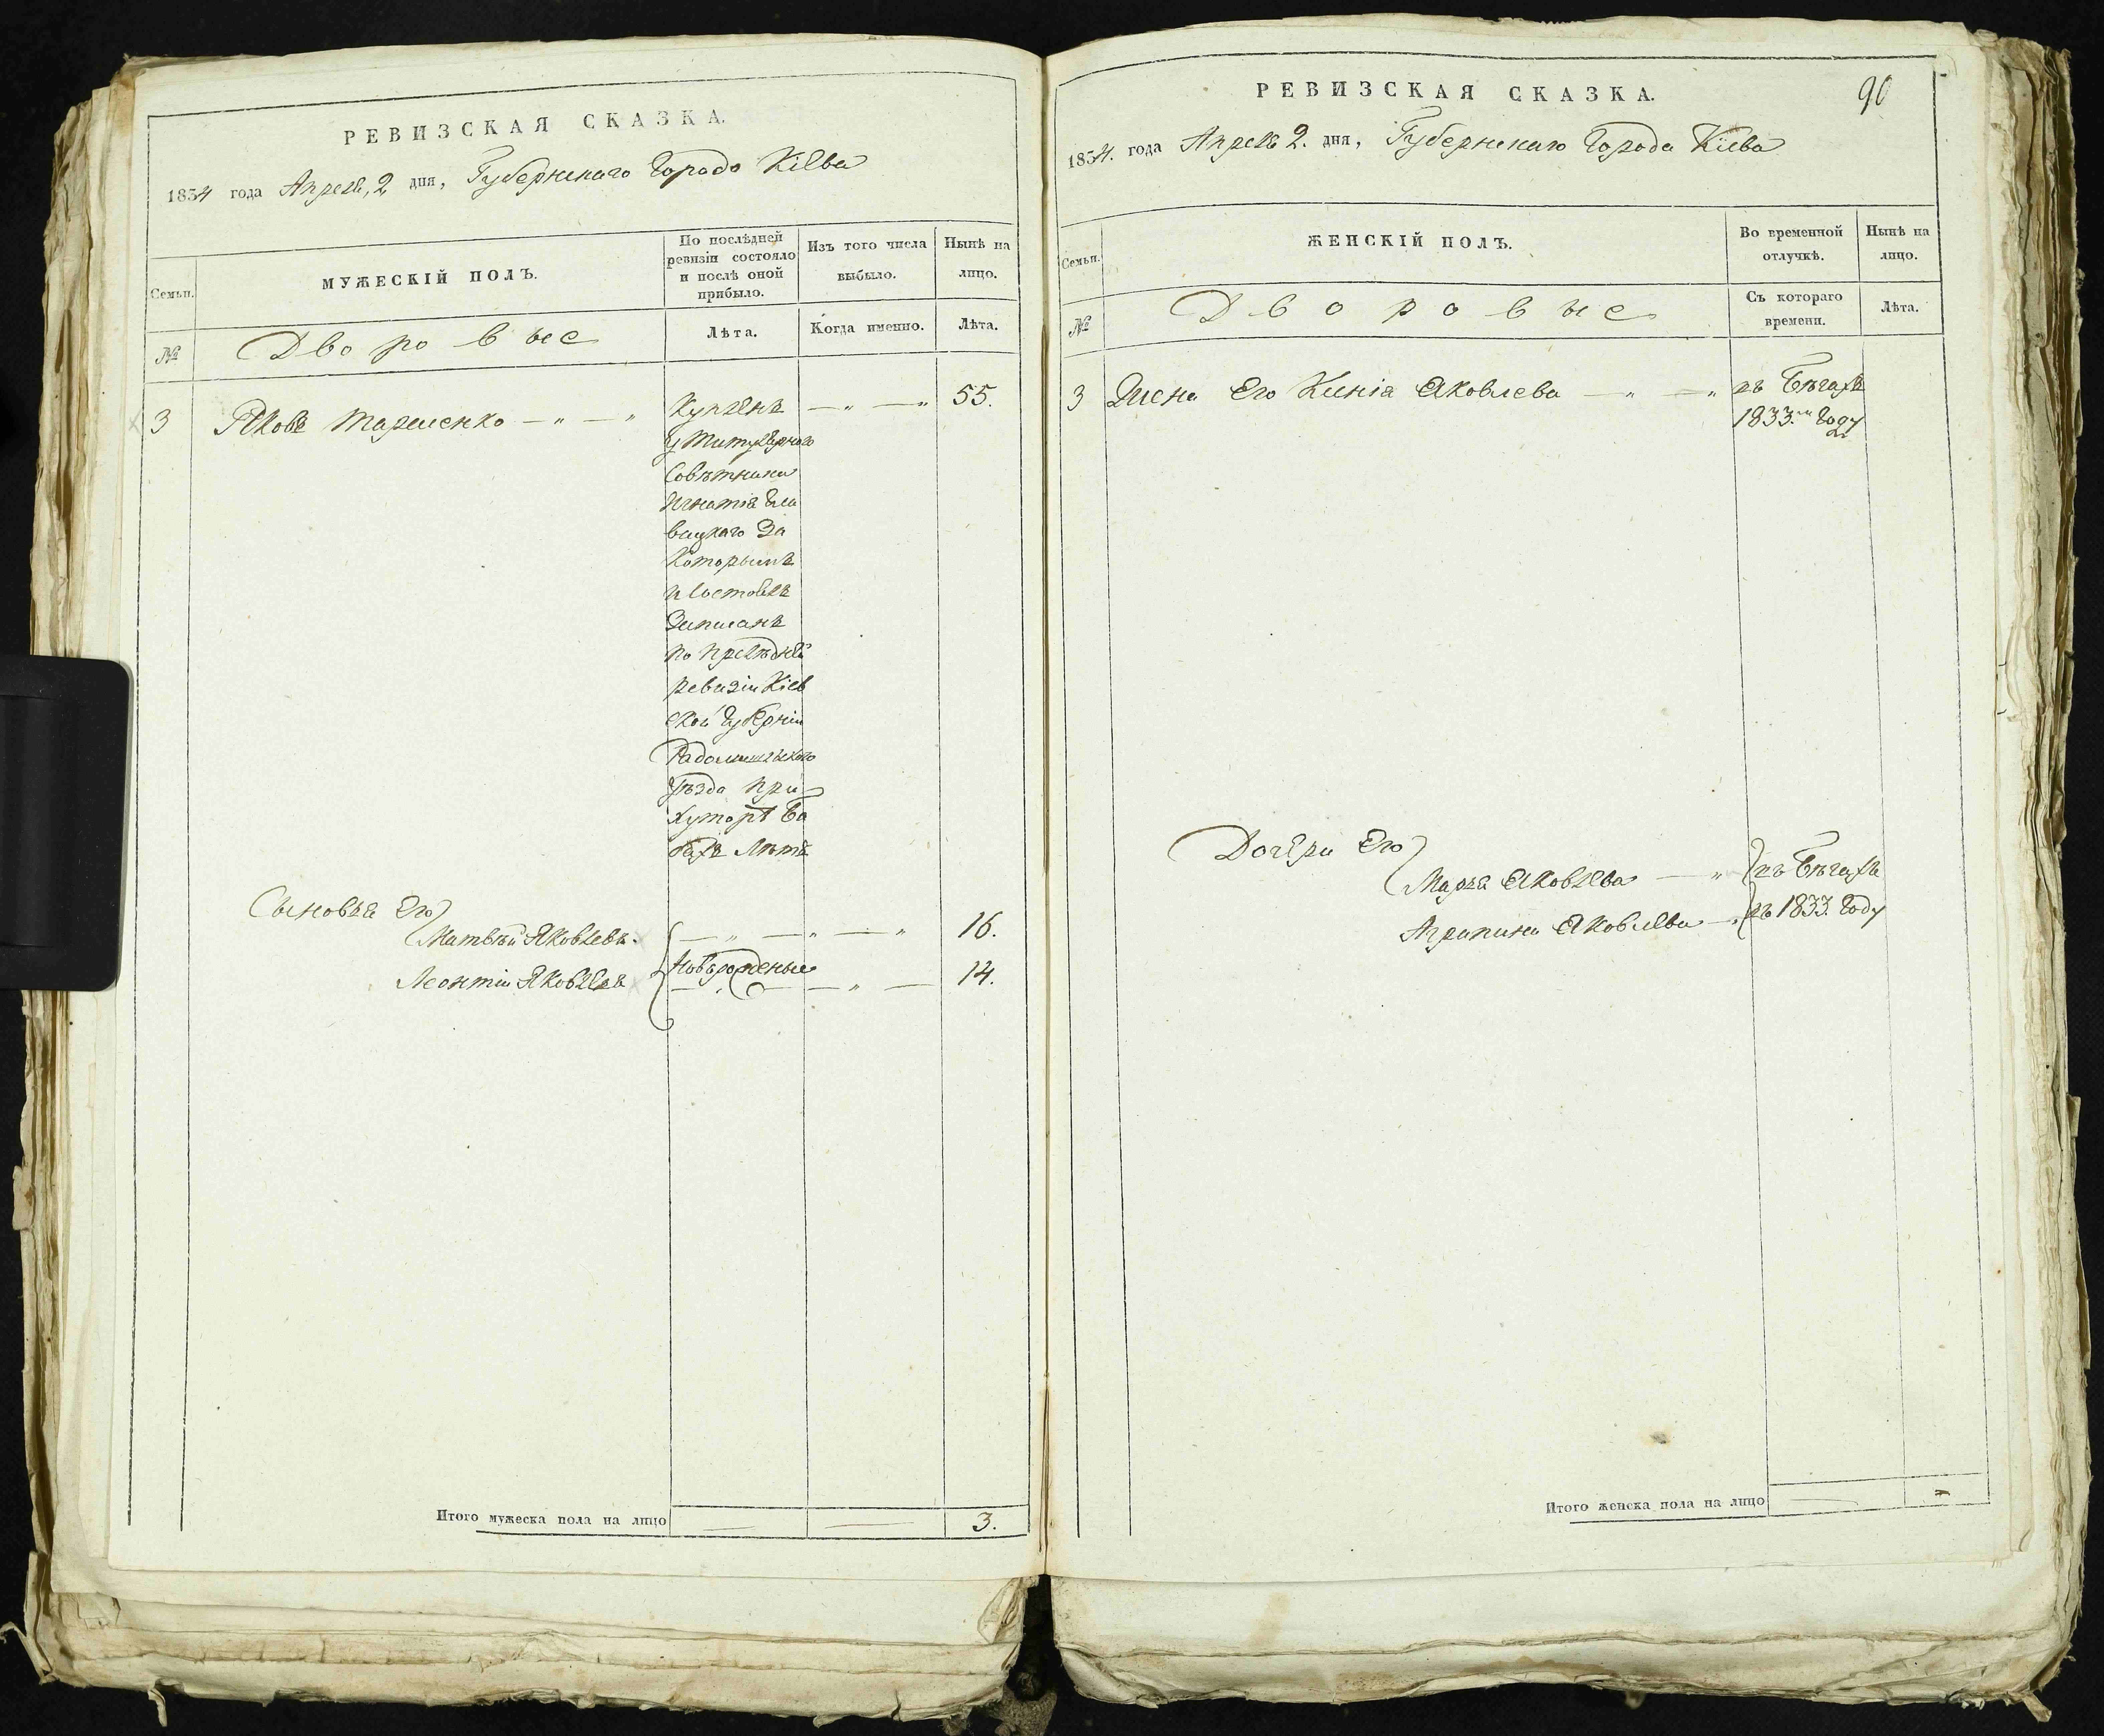 РЕВИЗСКАЯ СКАЗКА.
1834 года Апреля, 2 дня, Губернскаго Города Кіева
Семьи.
МУЖЕСКІЙ ПОЛЪ.
По послѣдней ревизіи состояло и послѣ оной прибыло.
Изъ того числа выбыло.
Нынѣ на лицо.
№
Дворовые
Лѣта.
Когда именно.
Лѣта.
3 Яковъ Тарменко — „ — „
Купленъ — „ — „ 55.
у Титулярнаго
Совѣтника
Игнатія
За
Которымъ
и Состоялъ
Записанъ
по предѣдней
ревизіи Кіев
ской Губерніи
Радомышльскаго
уѣзда при
Хуторѣ Ба
бахъ Лѣтъ
Сыновья Его
Матвѣй Яковлевъ. — „ — „ — „ 16.
Леонтій Яковлевъ Новорожденые — „ — 14.
Итого мужеска пола на лицо 3.
РЕВИЗСКАЯ СКАЗКА.
90
1834. года Апреля 2. дня, Губернскаго Города Кіева
Семьи.
ЖЕНСКІЙ ПОЛЪ.
Во временной отлучкѣ.
Нынѣ на лицо.
№
Дворовые
Съ котораго времени.
Лѣта.
3 Жена Его Ксенія Яковлева — „ — „ въ Бѣгахъ
1833.го Году
Дочери Его
Марья Яковлева — „ въ Бѣгахъ
Агрипина Яковлева — „ въ 1833. Году
Итого женска пола на лицо — =